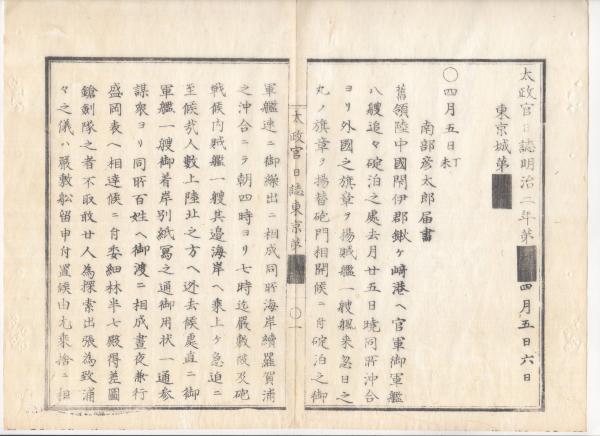 太政官日誌明治二年第 四月五日六日
東京城第
○四月五日丁未
南部彦太郎届書
舊領陸中國閉伊郡鍬ヶ﨑港ヘ官軍御軍艦
八艘追々碇泊之處去月廿五日曉同所沖合
ヨリ外國之旗章ヲ揚賊艦一艘颿来忽日之
丸ノ旗章ヲ揚替砲門相開候ニ付碇泊之御
太政官日誌東京第 ○一
軍艦速ニ御繰出ニ相成同所海岸續羅賀浦
之沖合ニテ朝四時ヨリ七時迄嚴敷被及砲
戰候内賊艦一艘其邉海岸ヘ乗上ヶ急迫ニ
至候哉人數上陸北之方ヘ迯去候處直ニ御
軍艦一艘御着岸別紙冩之通御用状一通参
謀衆ヨリ同所百姓ヘ御渡ニ相成晝夜兼行
盛岡表ヘ相達候ニ付委細林半七殿得差圖
鎗劍隊之者不取敢廿人為探索出張為致浦
々之儀ハ嚴敷船留申付置候由尤乗捨ニ相